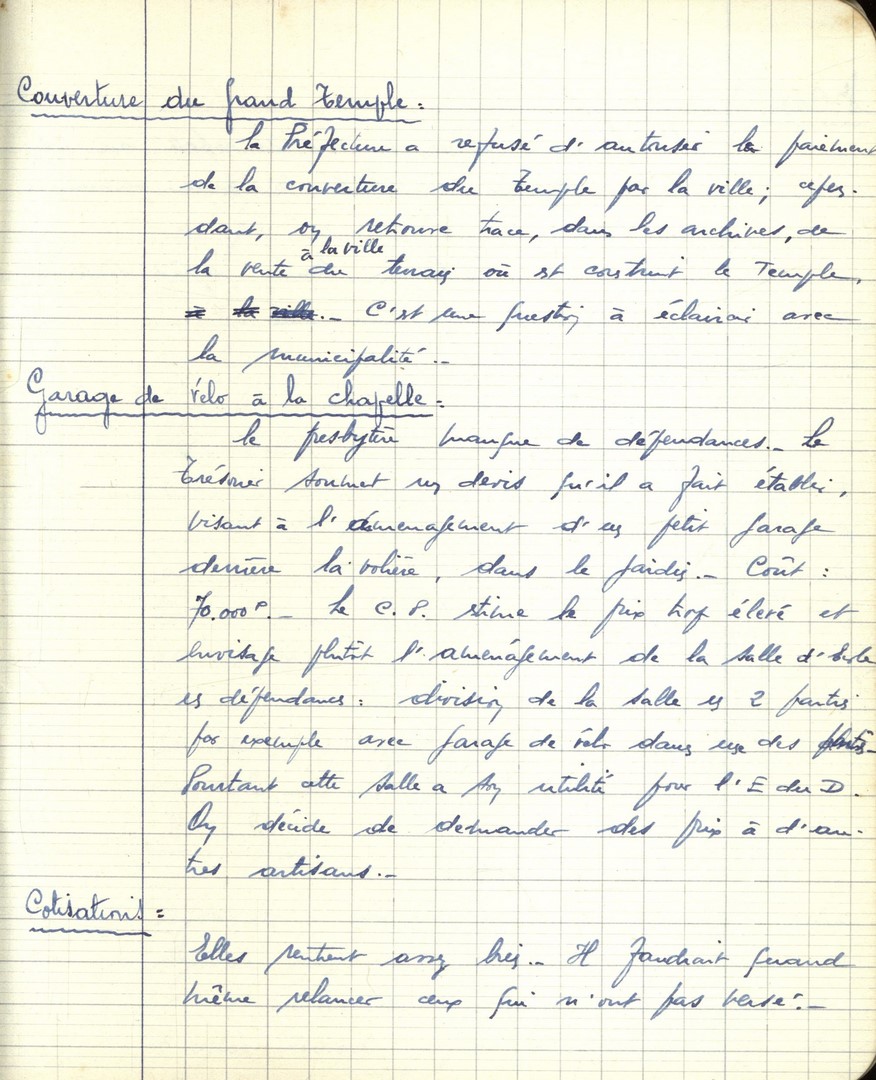 Couverture du Grand Temple :
la Préfecture a refusé d'autoriser le paiement
de la couverture du Temple par la ville ; cepen-
dant, on retrouve trace, dans les archives, de
la vente à la ville du terrain où est construit le Temple,
à la ville.- C'est une question à éclaircir avec
la municipalité.-
Garage de vélo à la chapelle :
le presbytère manque de dépendances.- Le
Trésorier soumet un devis qu'il a fait établir,
visant à l'aménagement d'un petit garage
derrière la volière, dans le jardin.- Coût :
70.000 F.- Le C. P. estime le prix trop élevé et
envisage plutôt l'aménagement de la salle d'Ecole
en dépendances : division de la salle en 2 parties
par exemple avec garage de vélo dans une des parties.-
Pourtant cette salle a son utilité pour l'E du D.
On décide de demander des prix à d'au-
tres artisans.-
Cotisations :
Elles rentrent assez bien.- Il faudrait quand
même relancer ceux qui n'ont pas versé.-